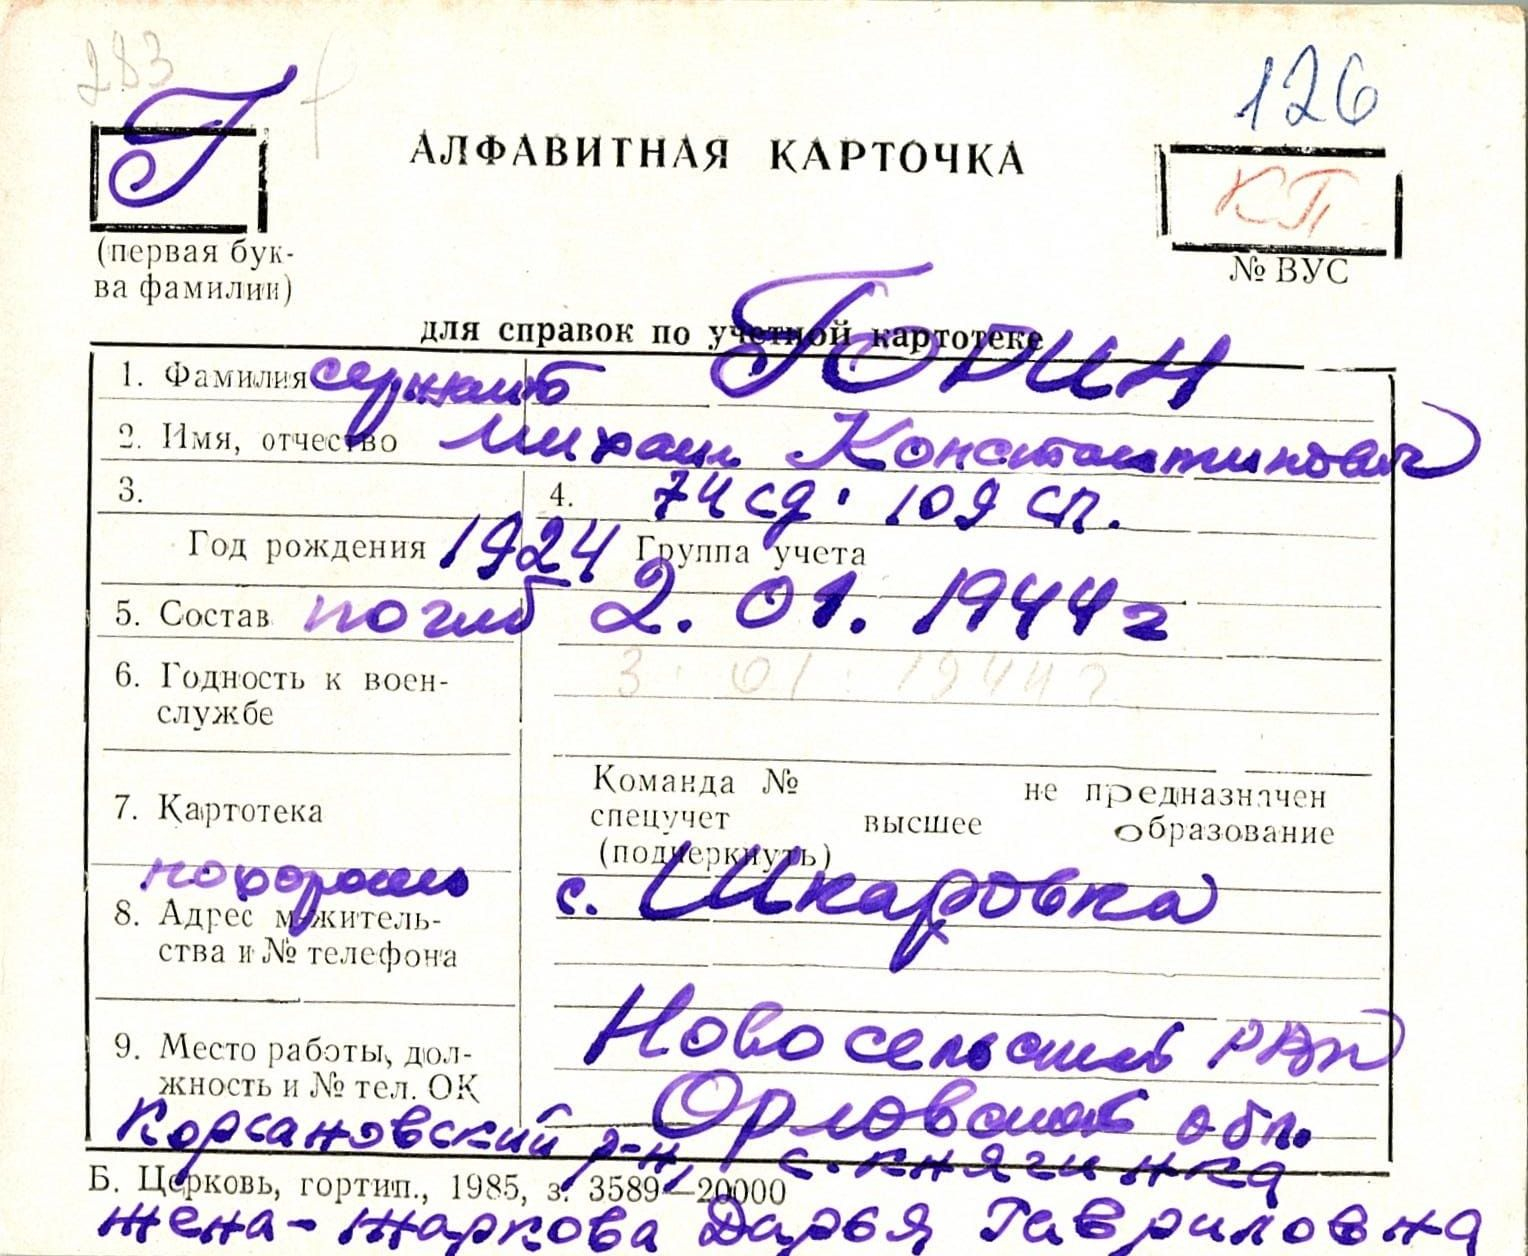 283
126
Г
АЛФАВИТНАЯ КАРТОЧКА
КП
(первая бук-
ва фамилии)
№ ВУС
для справок по учетной картотеке
1. Фамилия сержант ГОДИН
2. Имя, отчество Михаил Константинович
3. 4. 74 сд. 109 сп.
Год рождения 1924 Группа учета
5. Состав погиб 2. 01. 1944 г
6. Годность к воен- 3. 01. 1944 г
службе
Команда № не предназначен
7. Картотека спецучет высшее образование
(подчеркнуть)
похоронен с. Шкаровка
8. Адрес м/житель-
ства и № телефона
Новосельский
9. Место работы, дол-
жность и № тел. ОК
Орловской обл.
Корсановский р-н, с. княгинка
Б. Церковь, гортип., 1985, з. 3589—20000
жена - жаркова Дарья Гавриловна